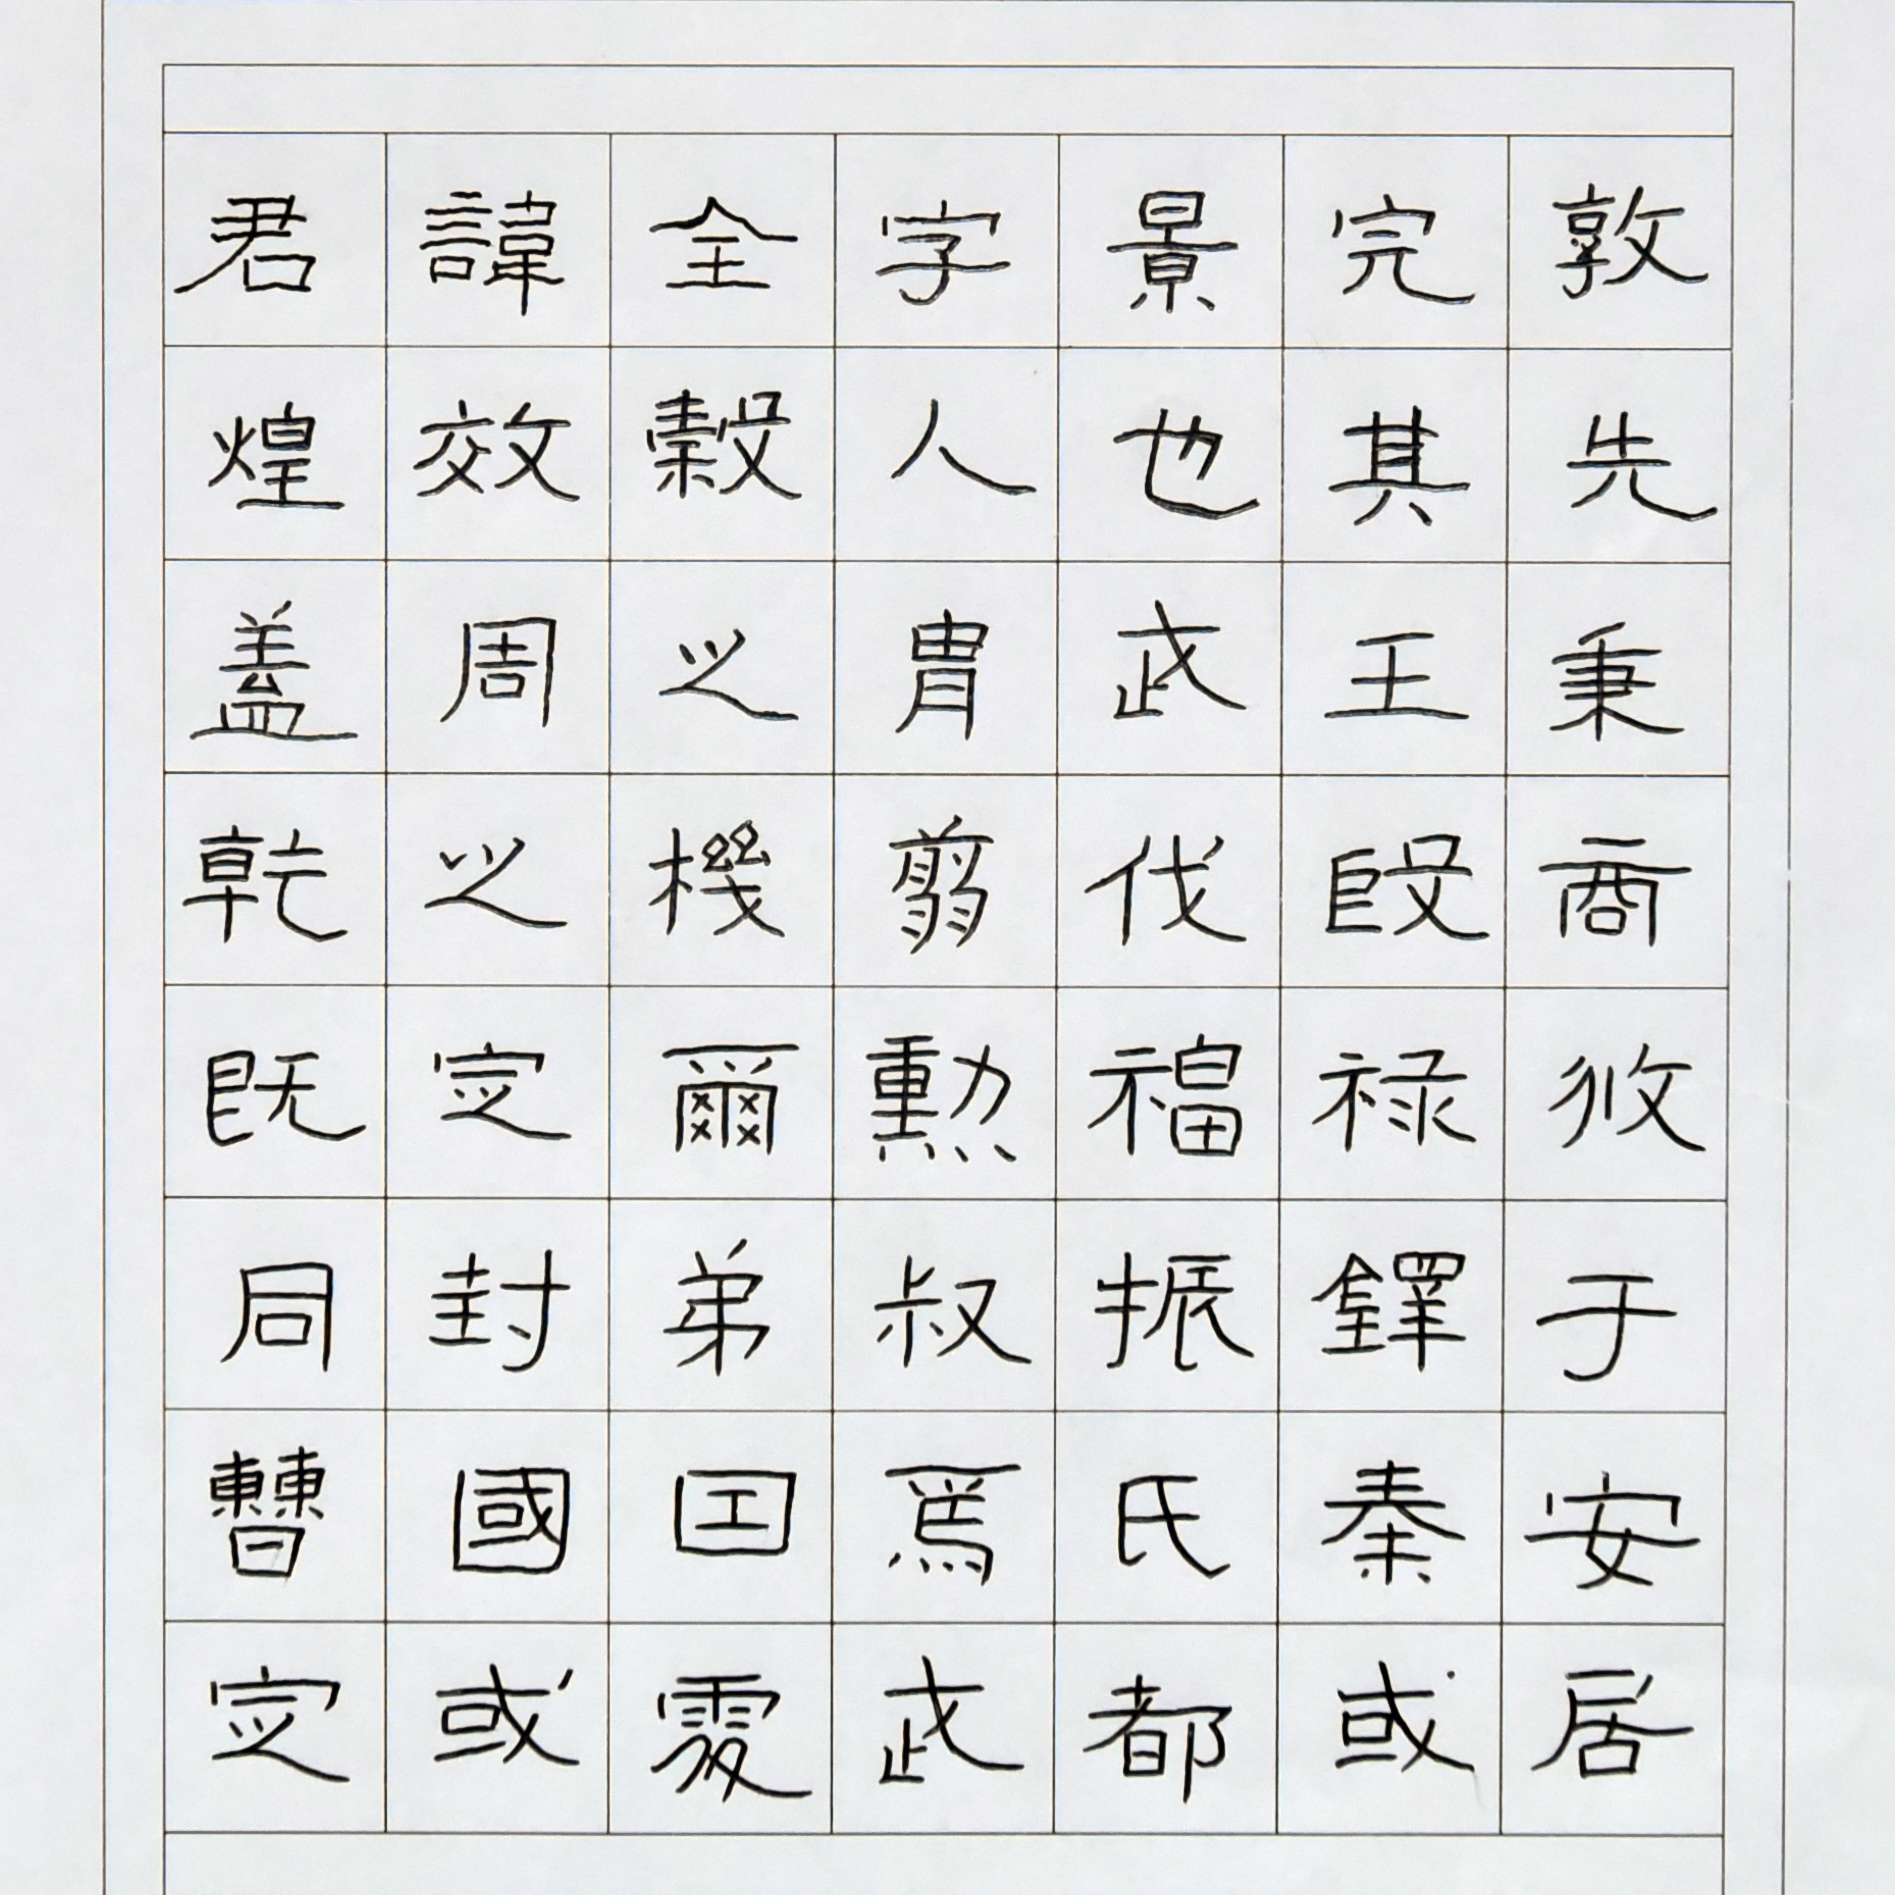 君諱全字景完敦
煌效穀人也其先
蓋周之胄武王秉
乾之機翦伐殷商
既定爾勳福祿攸
同封弟叔振鐸于
曹國囯焉氏秦安
定或處武都或居